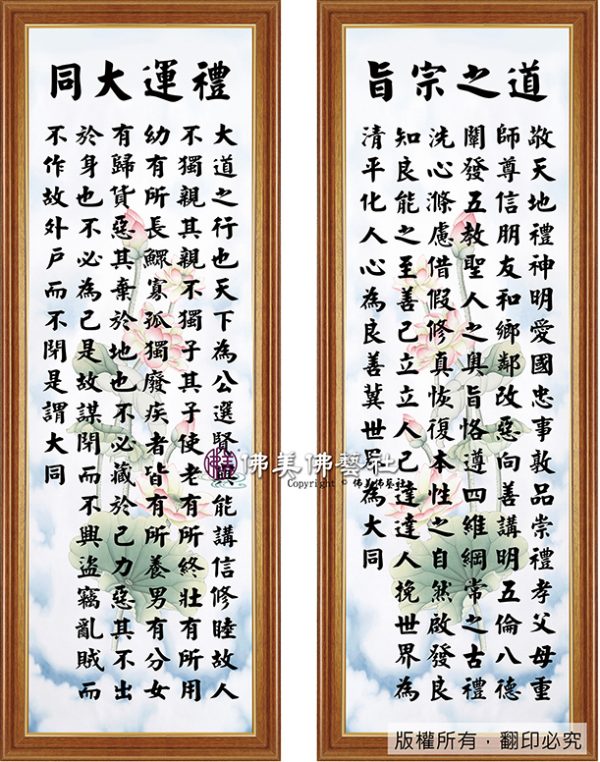 道之宗旨
敬天地禮神明愛國忠事敦品崇禮孝父母重
師尊信朋友和鄉鄰改惡向善講明五倫八德
闡發五教聖人之奧旨恪遵四維綱常之古禮
洗心滌慮借假修真恢復本性之自然啟發良
知良能之至善己立立人己達達人挽世界為
清平化人心為良善冀世界為大同
禮運大同
大道之行也天下為公選賢與能講信修睦故人
不獨親其親不獨子其子使老有所終壯有所用
幼有所長鰥寡孤獨廢疾者皆有所養男有分女
有歸貨惡其棄於地也不必藏於己力惡其不出
於身也不必為己是故謀閉而不興盜竊亂賊而
不作故外戶而不閉是謂大同
佛美佛藝社
Copyright © 佛美佛藝社
版權所有，翻印必究